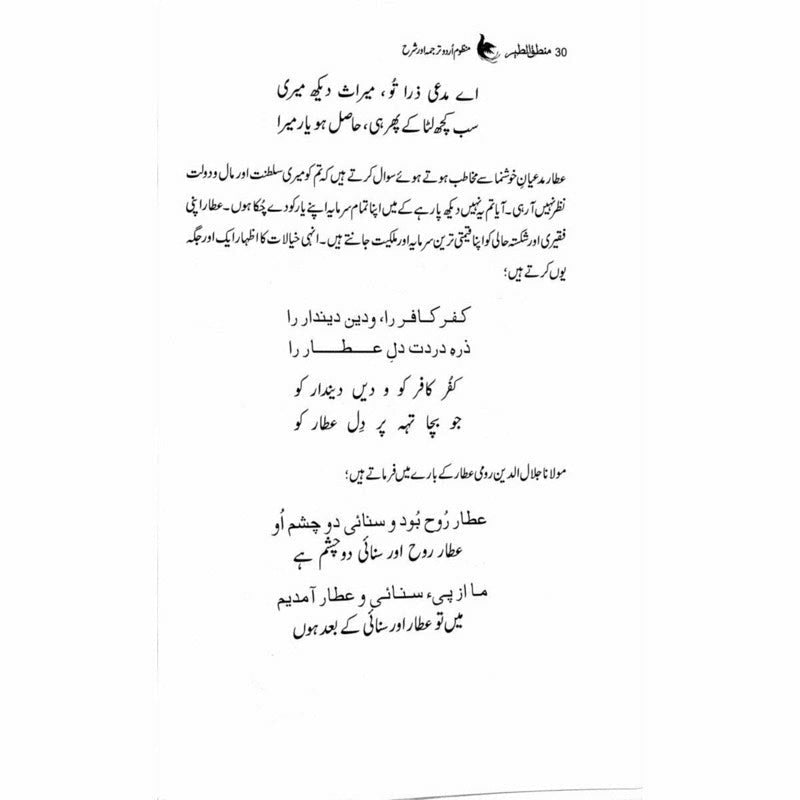 30 منطق الطیر منظوم اُردو ترجمہ اور شرح
اے مدعی ذرا تُو ، میراث دیکھ میری
سب کچھ لٹا کے پھر ہی، حاصل ہو یار میرا
عطار مدعیانِ خوشنما سے مخاطب ہوتے ہوئے سوال کرتے ہیں کہ تم کو میری سلطنت اور مال و دولت
نظر نہیں آ رہی۔ آیا تم یہ نہیں دیکھ پا رہے کے میں اپنا تمام سرمایہ اپنے یار کو دے چُکا ہوں۔ عطار اپنی
فقیری اور شکستہ حالی کو اپنا قیمتی ترین سرمایہ اور ملکیت جانتے ہیں۔ انہی خیالات کا اظہار ایک اور جگہ
یوں کرتے ہیں؛
کفر کافر را، ودین دیندار را
ذرہِ دردت دلِ عطار را
کفُر کافر کو و دیں دیندار کو
جو بچا تہہ پر دِل عطار کو
مولانا جلال الدین رومی عطار کے بارے میں فرماتے ہیں؛
عطار رُوح بُود و سنائی دو چشم اُو
عطار روح اور سنائی دو چشم ہے
ما از پیء سنائی و عطار آمدیم
میں تو عطار اور سنائی کے بعد ہوں